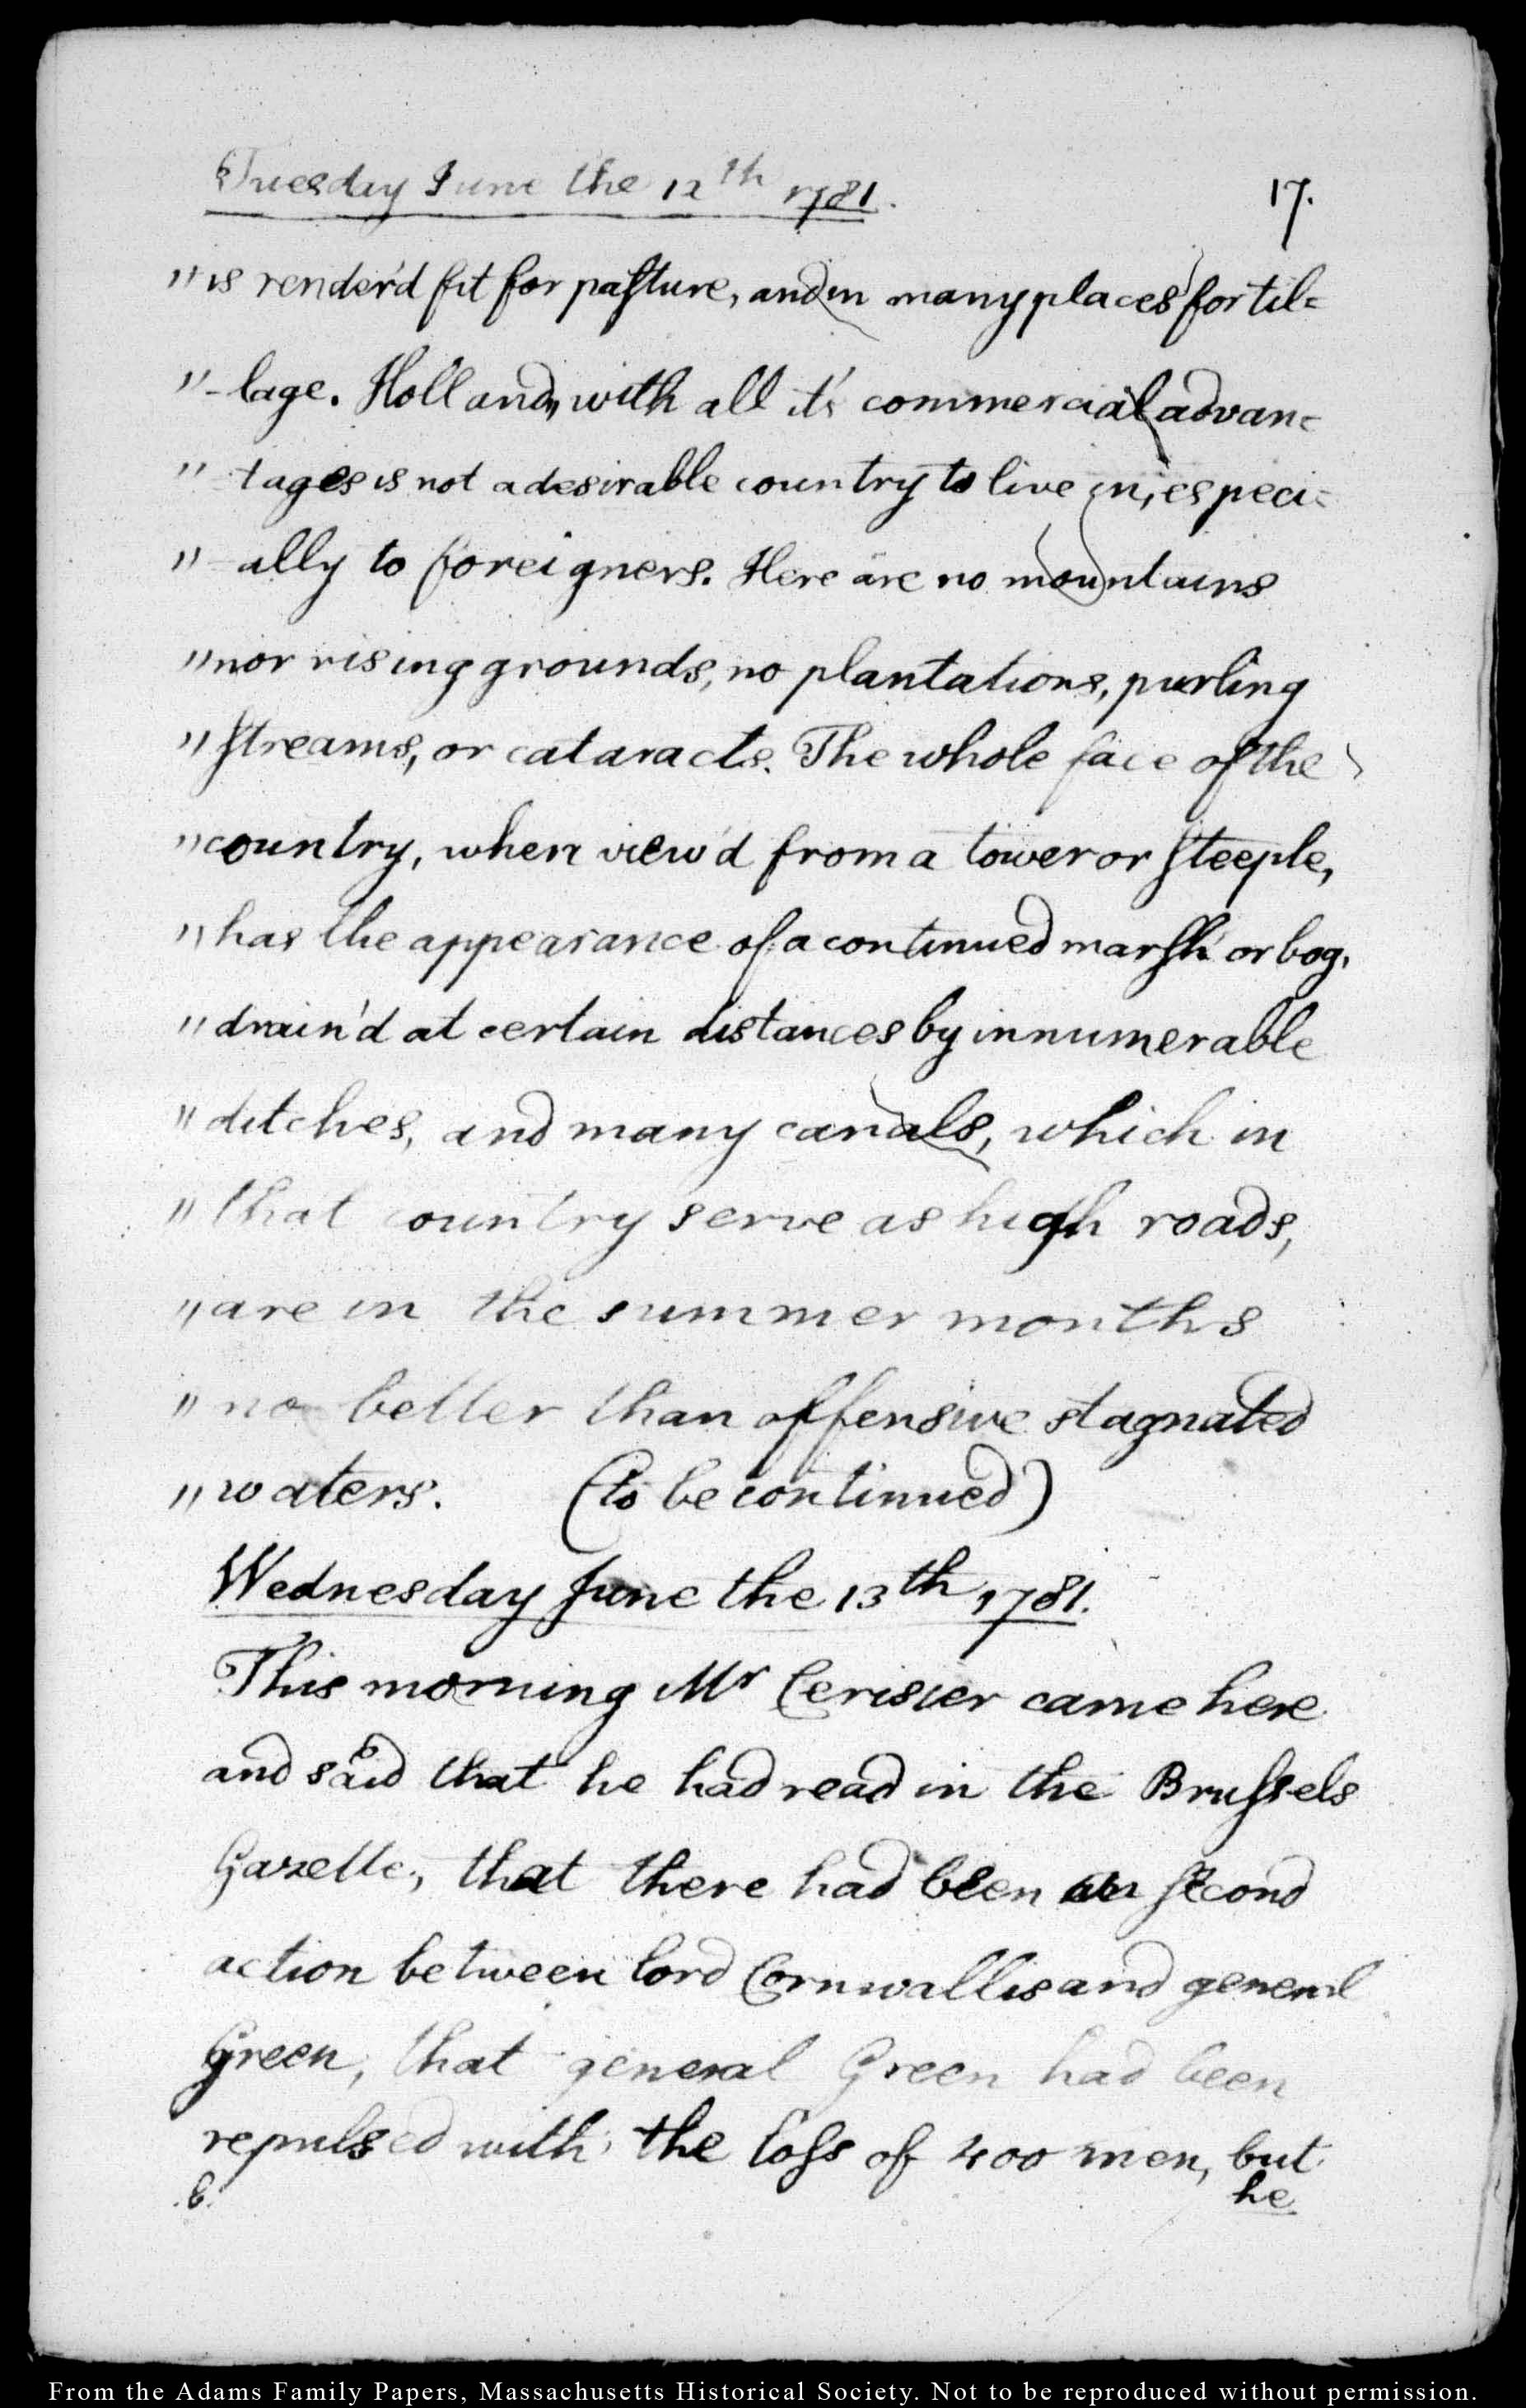 Tuesday June the 12th 1781. 17.
" is render'd fit for pasture, and in many places for til=
"-lage. Holland, with all it's commercial advan=
" tages is not a desirable country to live in, especi=
" ally to foreigners. Here are no mountains
" nor rising grounds, no plantations, purling
" streams, or cataracts. The whole face of the
" country, when view'd from a tower or steeple,
" has the appearance of a continued marsh or bog,
" drain'd at certain distances by innumerable
" ditches, and many canals, which in
" that country serve as high roads,
" are in the summer months
" no better than offensive stagnated
" waters. (to be continued)
Wednesday June the 13th 1781.
This morning Mr Cerisier came here
and said that he had read in the Brussels
Gazette, that there had been a second
action between lord Cornwallis and general
Green, that general Green had been
repulsed with the loss of 400 men, but
he
From the Adams Family Papers, Massachusetts Historical Society. Not to be reproduced without permission.